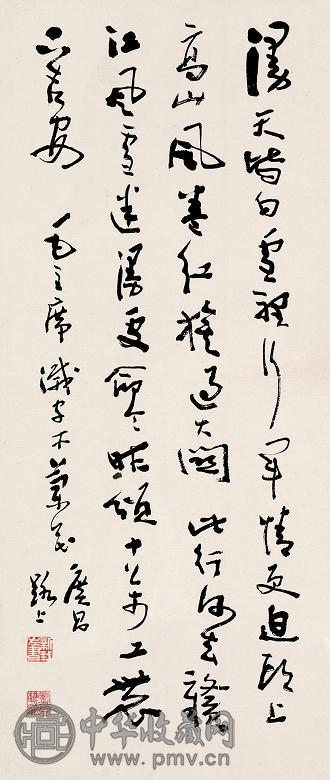 漫天皆白雪裡行军情更迫头上
高山風卷紅旗過大關此行何去贛
江風雪迷漫處命令昨頒十万工農
下吉安 毛主席減字木蘭花 廣昌
路上
中华收藏网
www.pmv.cn